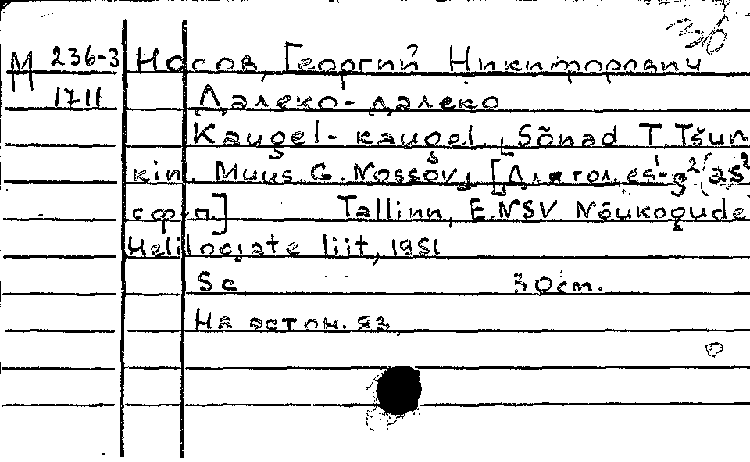 М 236-3 Носов, Георгий Никифорович
1711 Далеко-далеко
Kaugel-kaugel. Sõnad T. Tšur
kin. Muus G. Nossov. [Для гол. es¹-g²(as²
с ф-п.] Tallinn, E.NSV Nõukogude
Heliloojate liit, 1951
5 с 30cm.
На эстон. яз.